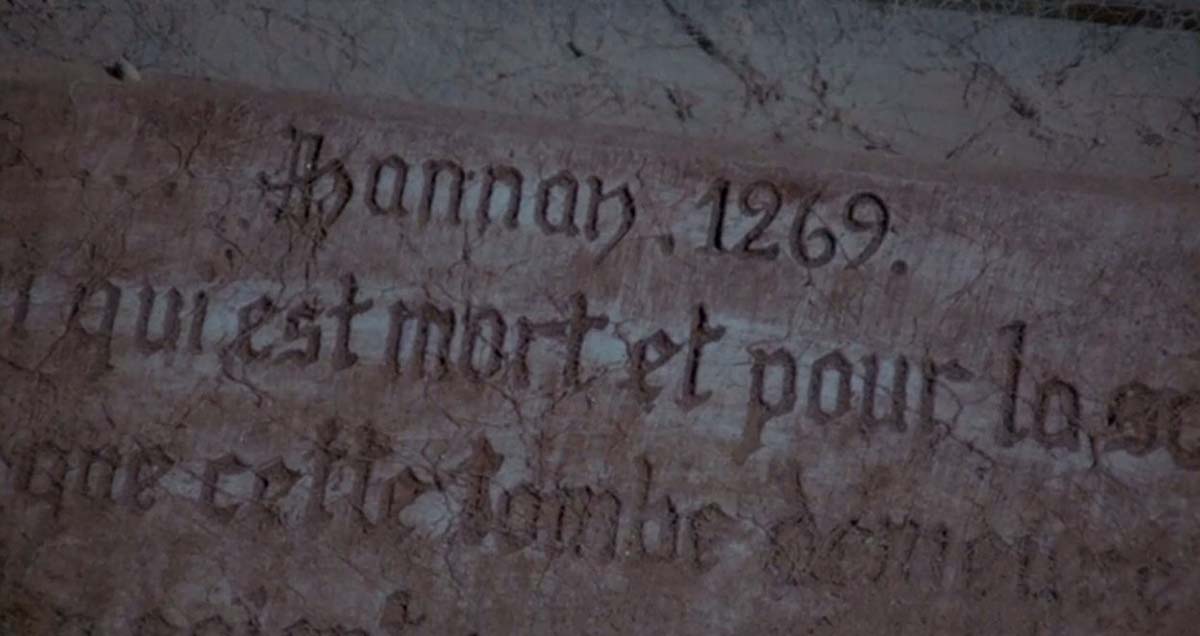 Hannan. 1269.
qui est mort et pour la
que cette tombe